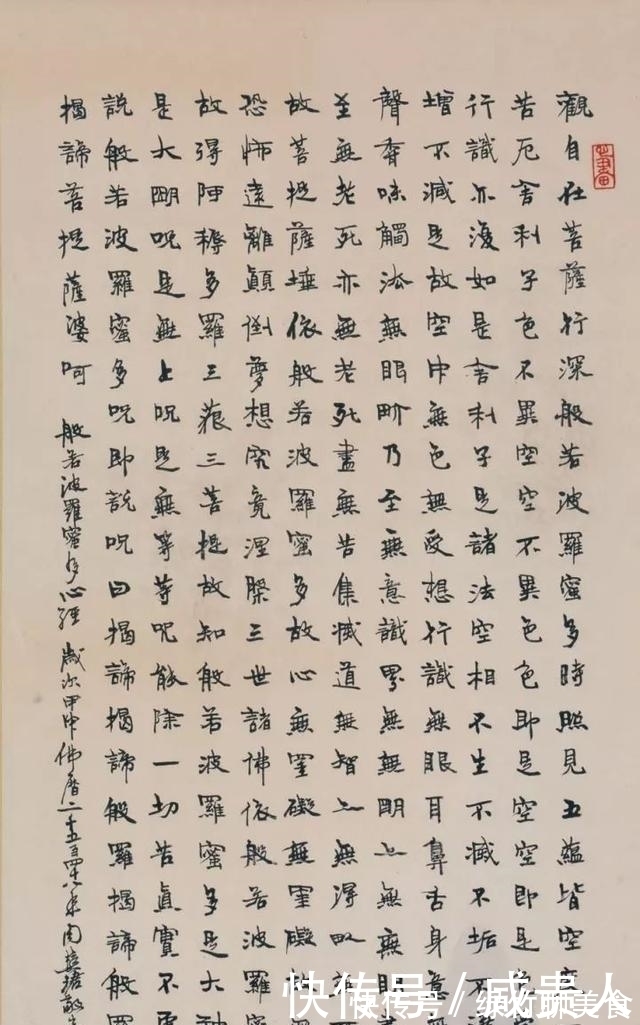 觀自在菩薩行深般若波羅蜜多時照見五蘊皆空
苦厄舍利子色不異空空不異色色即是空空即是
行識亦復如是舍利子是諸法空相不生不滅不垢不
增不減是故空中無色無受想行識無眼耳鼻舌身意
聲香味觸法無眼界乃至無意識界無無明亦無無明
至無老死亦無老死盡無苦集滅道無智亦無得以
故菩提薩埵依般若波羅蜜多故心無罣礙無罣礙故
恐怖遠離顛倒夢想究竟涅槃三世諸佛依般若波羅
故得阿耨多羅三藐三菩提故知般若波羅蜜多是大神
是大明呪是無上呪是無等等呪能除一切苦真實不
說般若波羅蜜多呪即說呪曰揭諦揭諦般羅揭諦般
揭諦菩提薩婆呵
般若波羅蜜多心經 歲次甲申佛曆二千五百四十八年周慧珺敬
快传号/臧贵人
快传号/